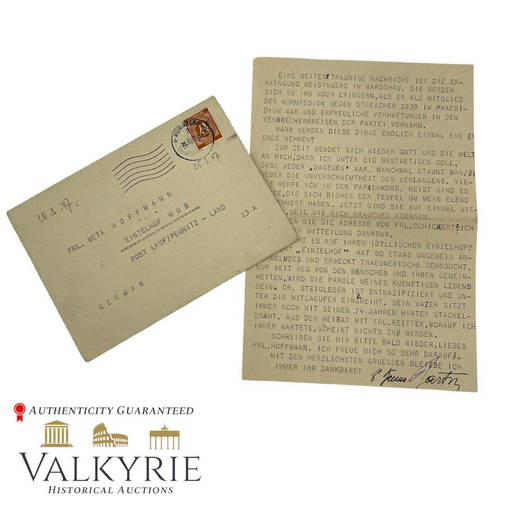 28.3.47.
NÜRNBERG
28.3.47
FRL. META HOFFMANN
EINZELHOF HUB
POST LAUF/PEGNITZ - LAND
13 A
GERMANY
EINE WEITERE TRAURIGE NACHRICHT IST DIE ER-
HAENGUNG MEISINGERS IN WARSCHAU. SIE WERDEN
SICH AN IHN NOCH ERINNERN, ALS ER ALS MITGLIED
DER KOMMISSION GEGEN STREICHER 1939 IM PRAESI-
DIUM WAR UND ERFREULICHE VERHAFTUNGEN IN DEN
VERBRECHERKREISEN DER PARTEI VORNAHM.
WANN WERDEN DIESE DINGE ENDLICH EINMAL EIN E
ENDE NEHMEN?
ZUR ZEIT WENDET SICH WIEDER GOTT UND DIE WELT
AN MICH, DASS ICH UNTER EID BESTAETIGEN SOLL,
DASS JEDER "DAGEGEN" WAR. MANCHMAL STAUNT MAN
UEBER DIE UNVERSCHAEMTHEIT DES VERLANGENS. VIE-
WERFE ICH IN DEN PAPIERKORB. MEIST SIND ES
DIE SICH DEN TEUFEL UM MEIN ELEND
HABEN. JETZT SIND SIE AUF EINMAL
WEIL SIE MICH BRAUCHEN KOENNEN.
SIE DIE ADRESSE VON FRL. SCHICKERT
MITTEILUNG DANKBAR.
ES AUF IHREM IDYLLISCHEN EINZELHOF?
"EINZELHOF" HAT SO ETWAS UNGEMEIN AN-
UND ERWECKT TRAEUMERISCHE SEHNSUCHT.
WEIT WEG VON DEN MENSCHEN UND IHREN GEMEIN-
WIRD DIE PAROLE MEINES KUENFTIGEN LEBENS
SEIN. DR. STEIGLEDER IST ENTNAZIFIZIERT UND UN-
TER DIE MITLAEUFER EINGREIHT. SEIN VATER SITZT
IMMER NOCH MIT SEINEN 74 JAHREN HINTER STACHEL-
DRAHT. AUS DER HEIRAT MIT FRL. REITTER, WORAUF ICH
IMMER WARTETE, SCHEINT NICHTS ZU WERDEN.
SCHREIBEN SIE MIR BITTE BALD WIEDER, LIEBES
FRL. HOFFMANN. ICH FREUE MICH SO SEHR DARAUF.
MIT DEN HERZLICHSTEN GRUESSEN BLEIBE ICH
IMMER IHR DANKBARER
AUTHENTICITY GUARANTEED
VALKYRIE
HISTORICAL AUCTIONS